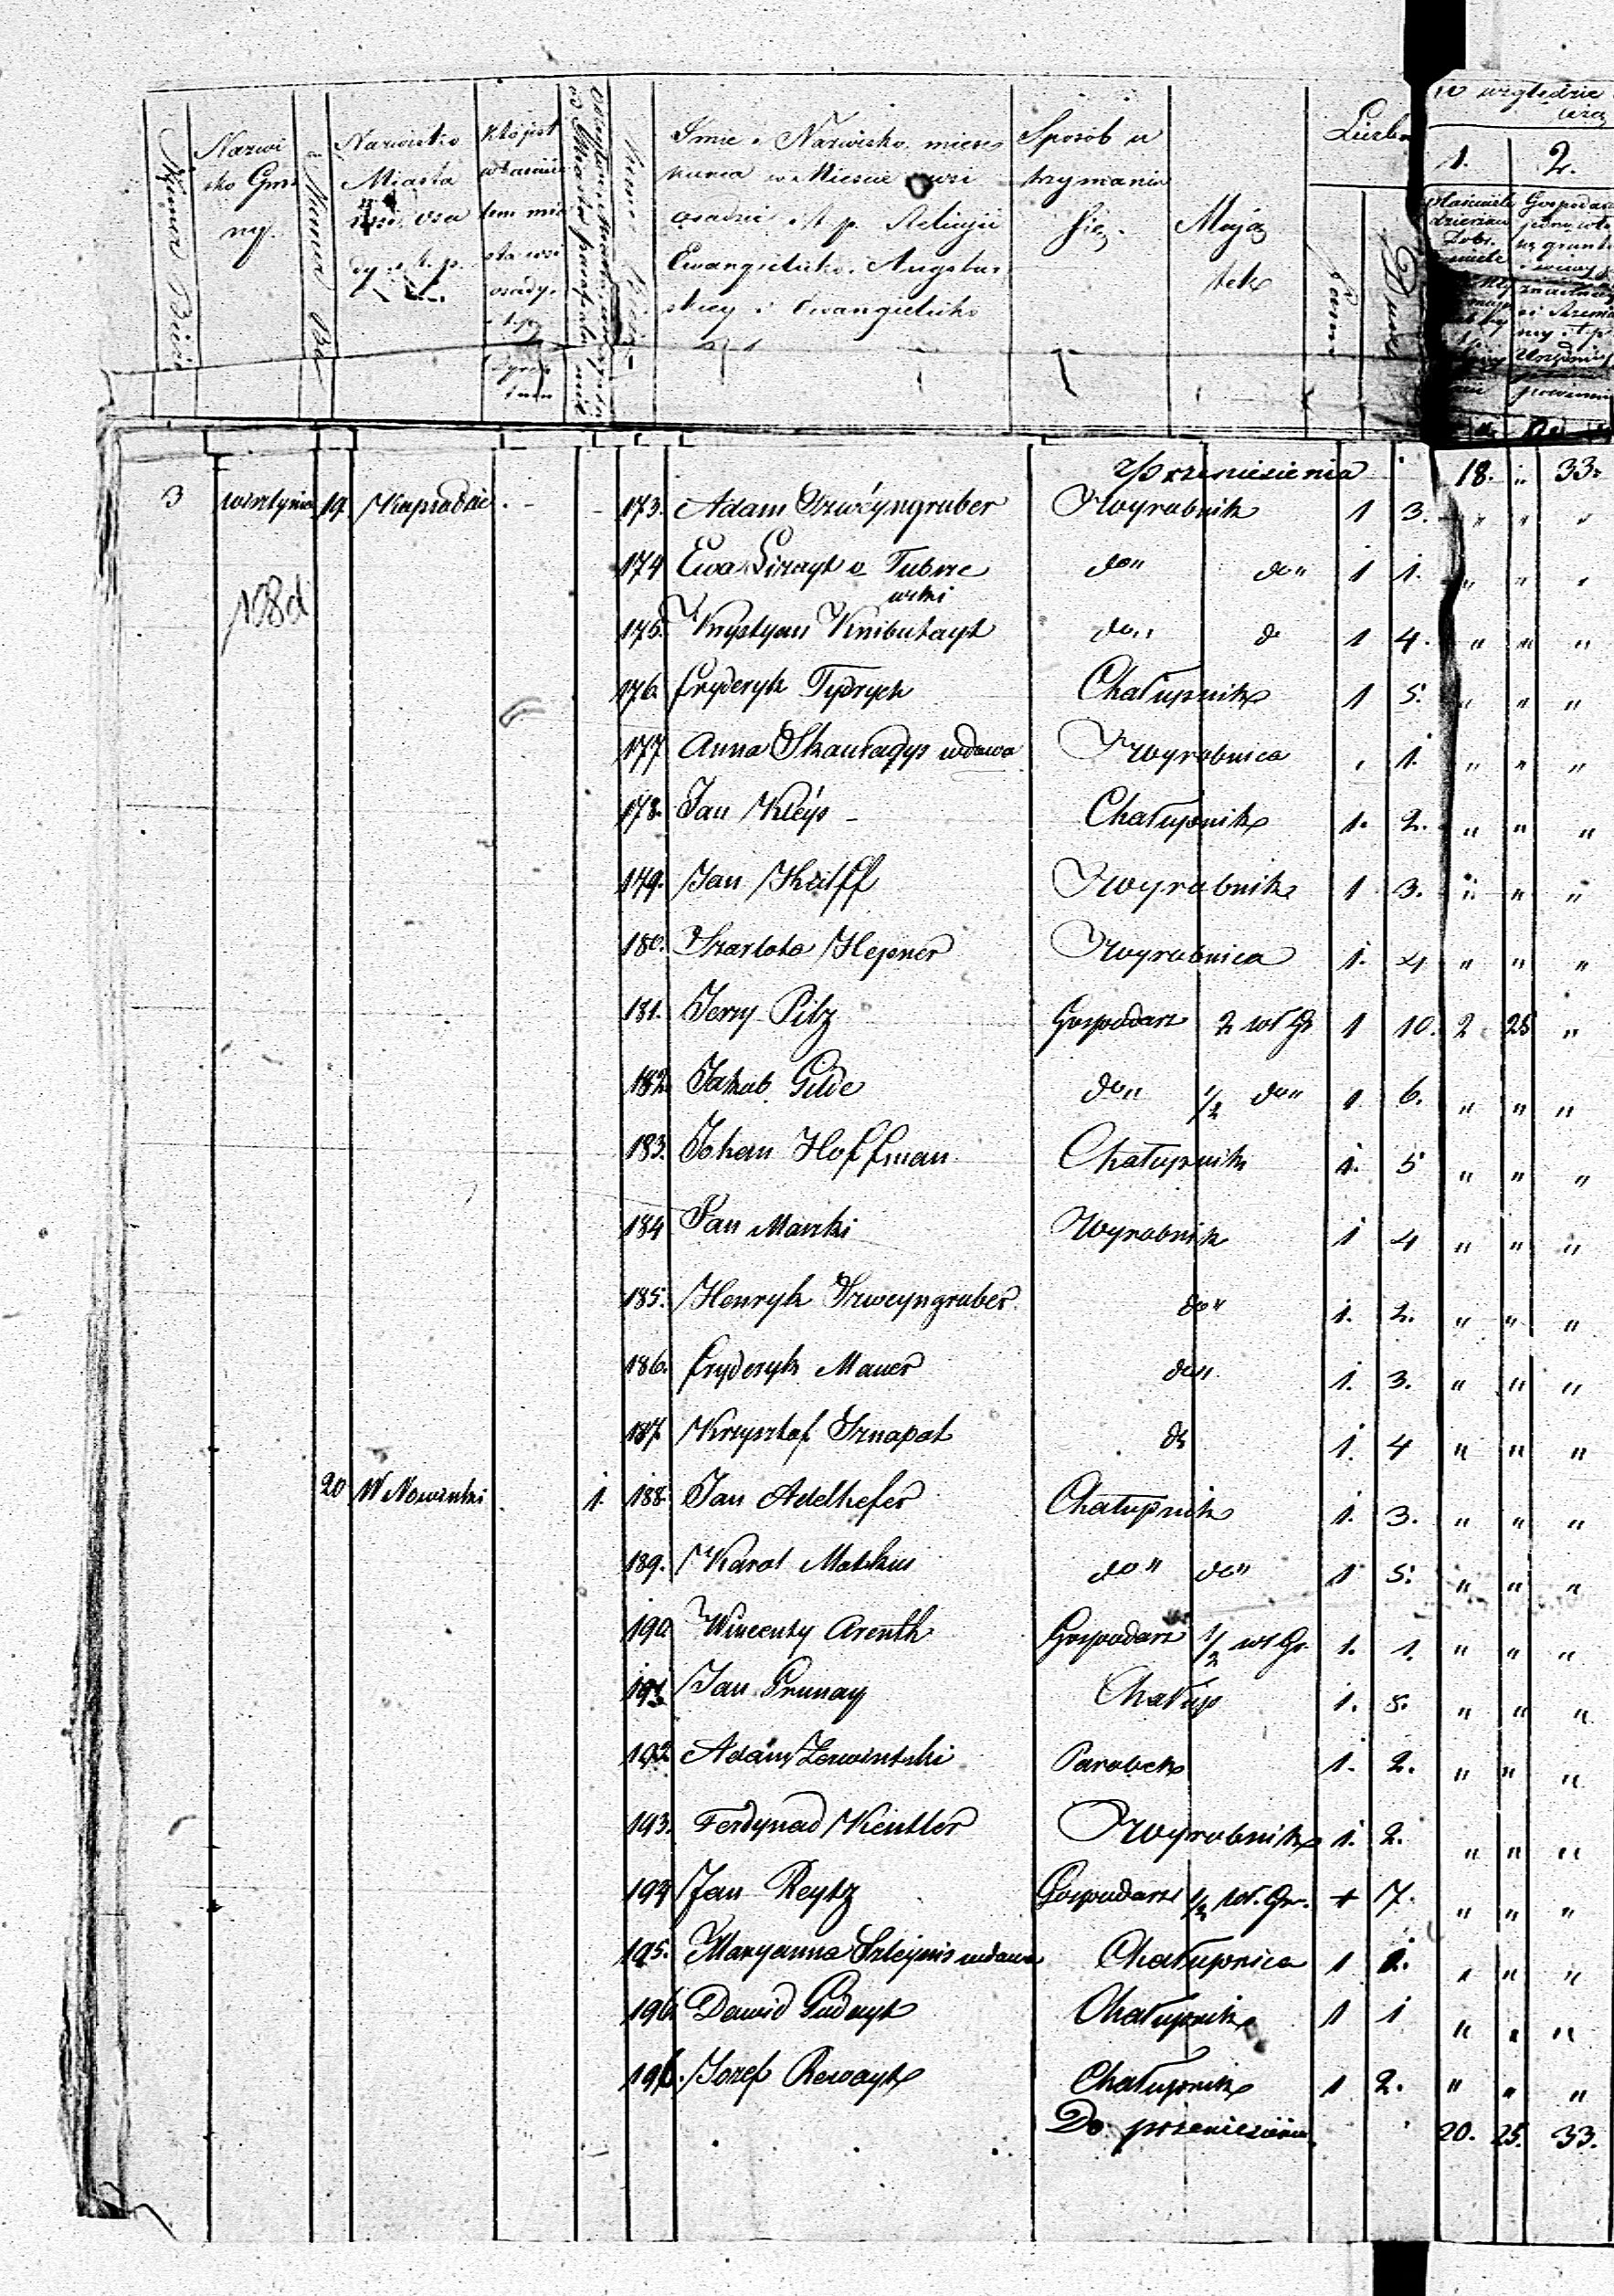 Nazwi
sko Gmi
ny.
Nazwisko
Miasta
wsi, osa
dy i t. p.
Kto jest
właścicie
lem mia
sta wsi
osady.
i t.p.
Imie i Nazwisko miesz
kańca w Mieście wsi
osadzie i t p. Religii
Ewangelicko. Augsbur
skiey i Ewangelicko
Sposób u
trzymania
się.
Mają
tek
Liczba
Fam
Dusz
w względzie
1. 2.
z Przeniesienia 18. " 33.
3 Wisztyniec 19. Kupsodzie 173. Adam Szweyngruber Wyrobnik 1 3. " " "
174 Ewa Lizayt v Tubze do" do" 1 1. " " "
wski
108d
175. Krystyan Knibutayt do" do 1 4. " " "
176. Fryderyk Tydrych Chałupnik 1 5. " " "
177 Anna Skauradys wdowa Wyrobnica " 1. " " "
178. Jan Kleys - Chałupnik 1. 2. " " "
179. Jan Keilff Wyrobnik 1 3. " " "
180. Szarlota Hepner Wyrobnica 1. 4 " " "
181. Jerzy Pilz Gospodarz 2 wł Gr 1 10. 2 25 "
182. Jakub Gilde do" 1/2 do" 1 6. " " "
183. Johan Hoffman Chałupnik 1. 5 " " "
184 Jan Manki Wyrobnik 1 4 " " "
185. Henryk Szweyngruber do" 1. 2. " " "
186. Fryderyk Mauer do" 1. 3. " " "
187 Krzysztof Sznapat do 1. 4 " " "
20 W Nowinki 1. 188. Jan Adelhefer Chałupnik 1. 3. " " "
189. Karol Matkus do" do" 1 5. " " "
190. Wincenty Arenth Gospodarz 1/2 wł Gr. 1. 1. " " "
191. Jan Grunay Chałup 1. 5. " " "
192. Adam Zawintzki Parobek 1. 2. " " "
193. Ferdynad Kentler Wyrobnik 1. 2. " " "
194 Jan Reytz Gospodarz 1/2 wł. Gr. 1 7. " " "
195. Maryanna Szleynis wdowa Chałupnica 1 1. " " "
196. Dawid Gudayt Chałupnik 1 1 " " "
196. Jozef Rewayt Chałupnik 1 2. " " "
Do przeniesienia 20. 25. 33.